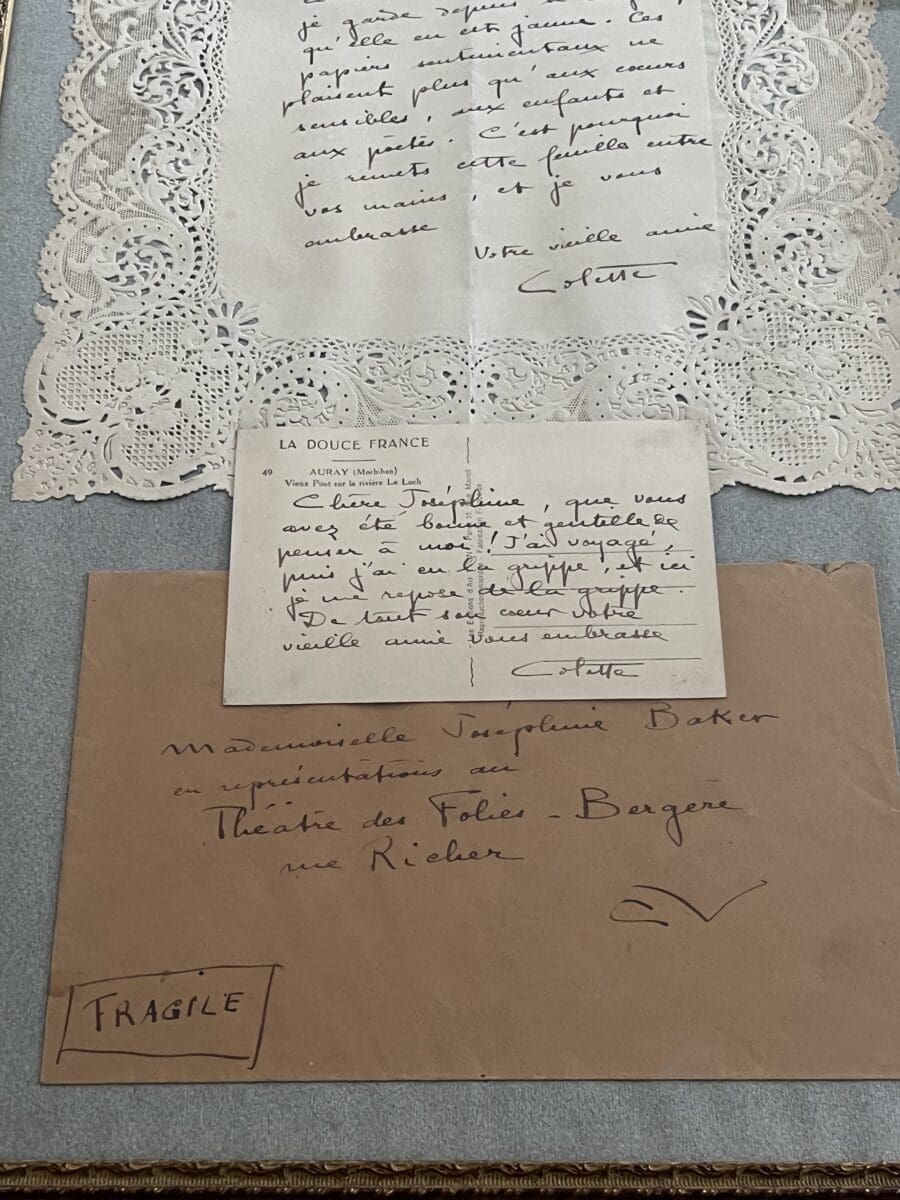 je garde depuis
qu'elle en est jaune. Ces
papiers sentimentaux ne
plaisent plus qu'aux cœurs
sensibles, aux enfants et
aux poètes. C'est pourquoi
je remets cette feuille entre
vos mains, et je vous
embrasse
Votre vieille amie
Colette
LA DOUCE FRANCE
49 AURAY (Morbihan)
Vieux Pont sur la rivière Le Loch
Chère Joséphine, que vous
avez été bonne et gentille de
penser à moi! J'ai voyagé,
puis j'ai eu la grippe, et ici
je me repose de la grippe.
De tout son cœur votre
vieille amie vous embrasse
Colette
Mademoiselle Joséphine Baker
en représentations au
Théâtre des Folies-Bergère
rue Richer
EV
FRAGILE